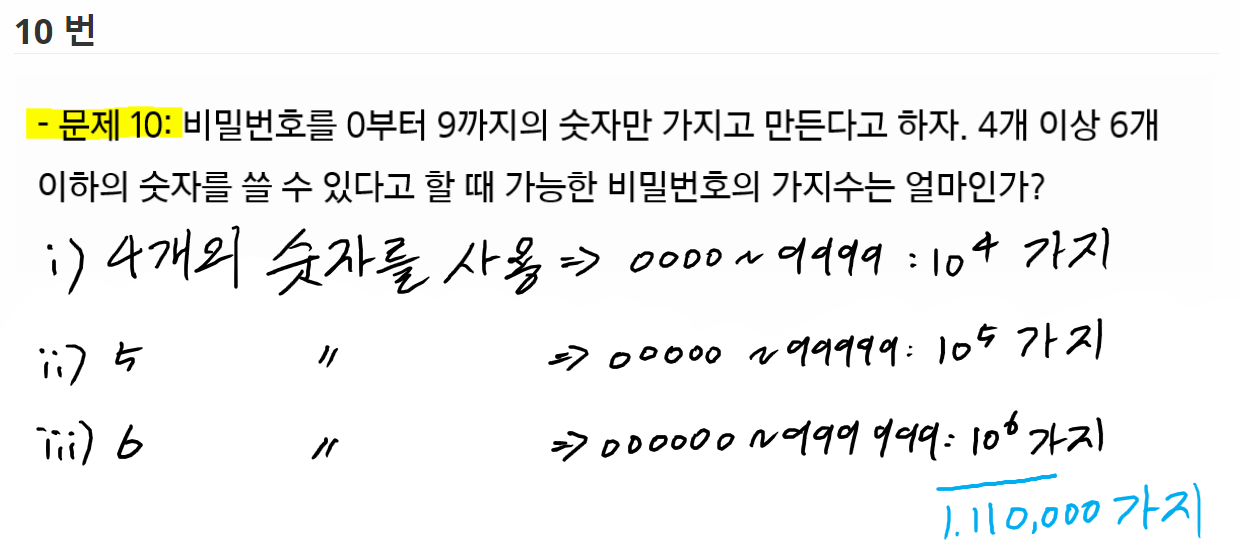 10 번
- 문제 10: 비밀번호를 0부터 9까지의 숫자만 가지고 만든다고 하자. 4개 이상 6개
이하의 숫자를 쓸 수 있다고 할 때 가능한 비밀번호의 가지수는 얼마인가?
i) 4개의 숫자를 사용 => 0000 ~ 9999 : 10⁴ 가지
ii) 5 〃 => 00000 ~ 99999 : 10⁵ 가지
iii) 6 〃 => 000000 ~ 999 999 : 10⁶ 가지
1.110,000 가지